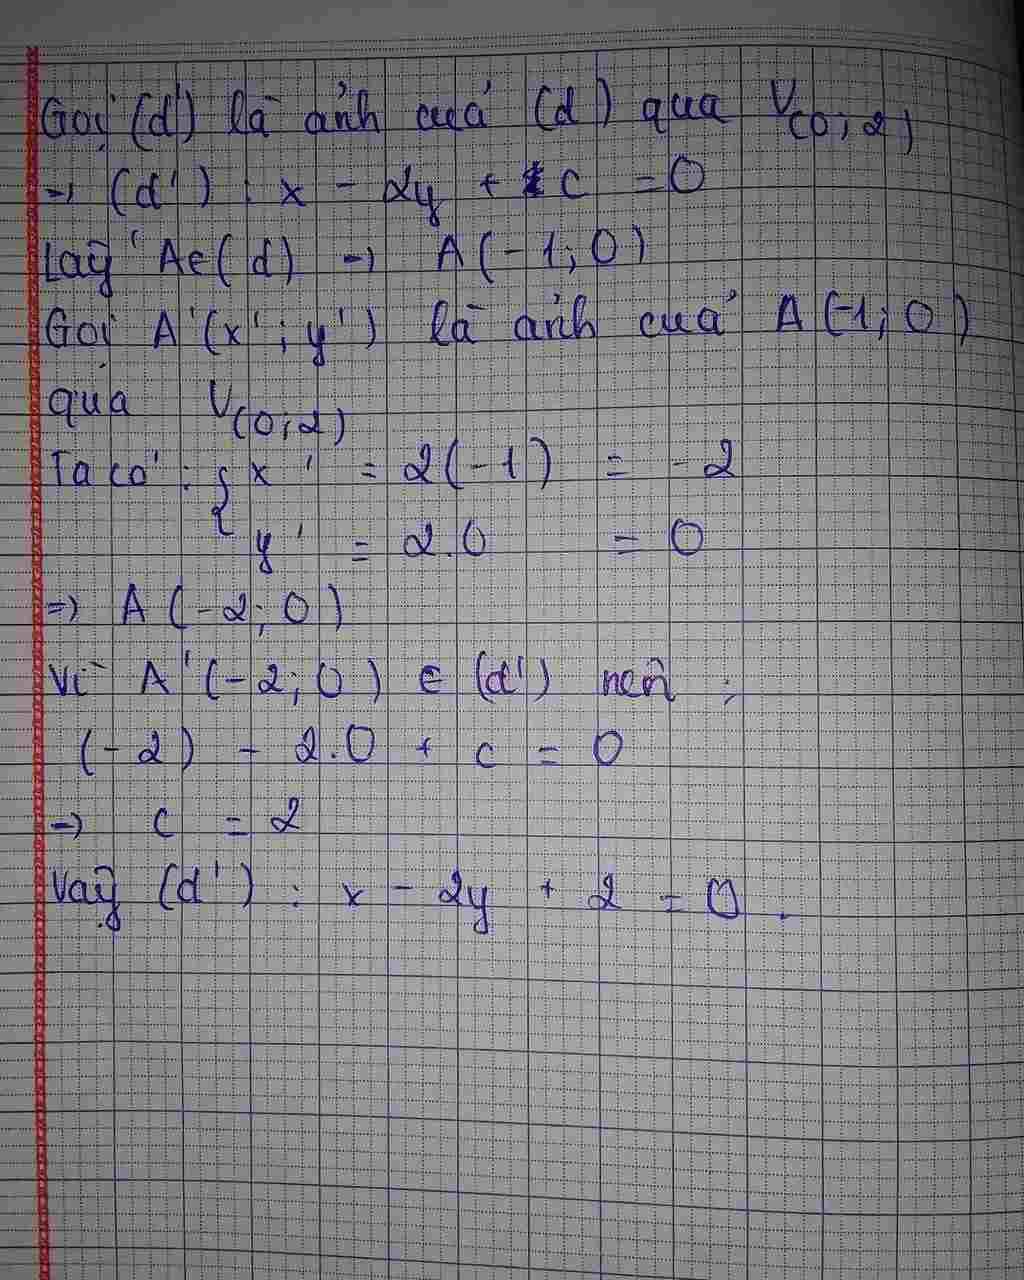 Gọi (d') là ảnh của (d) qua V(O;2)
→ (d') : x - 2y + c = 0
Lấy A∈(d) → A(-1;0)
Gọi A'(x';y') là ảnh của A(-1;0)
qua V(O;2)
Ta có : { x' = 2(-1) = -2
y' = 2.0 = 0
=> A(-2;0)
Vì A'(-2;0) ∈ (d') nên :
(-2) - 2.0 + c = 0
→ c = 2
Vậy (d') : x - 2y + 2 = 0 .